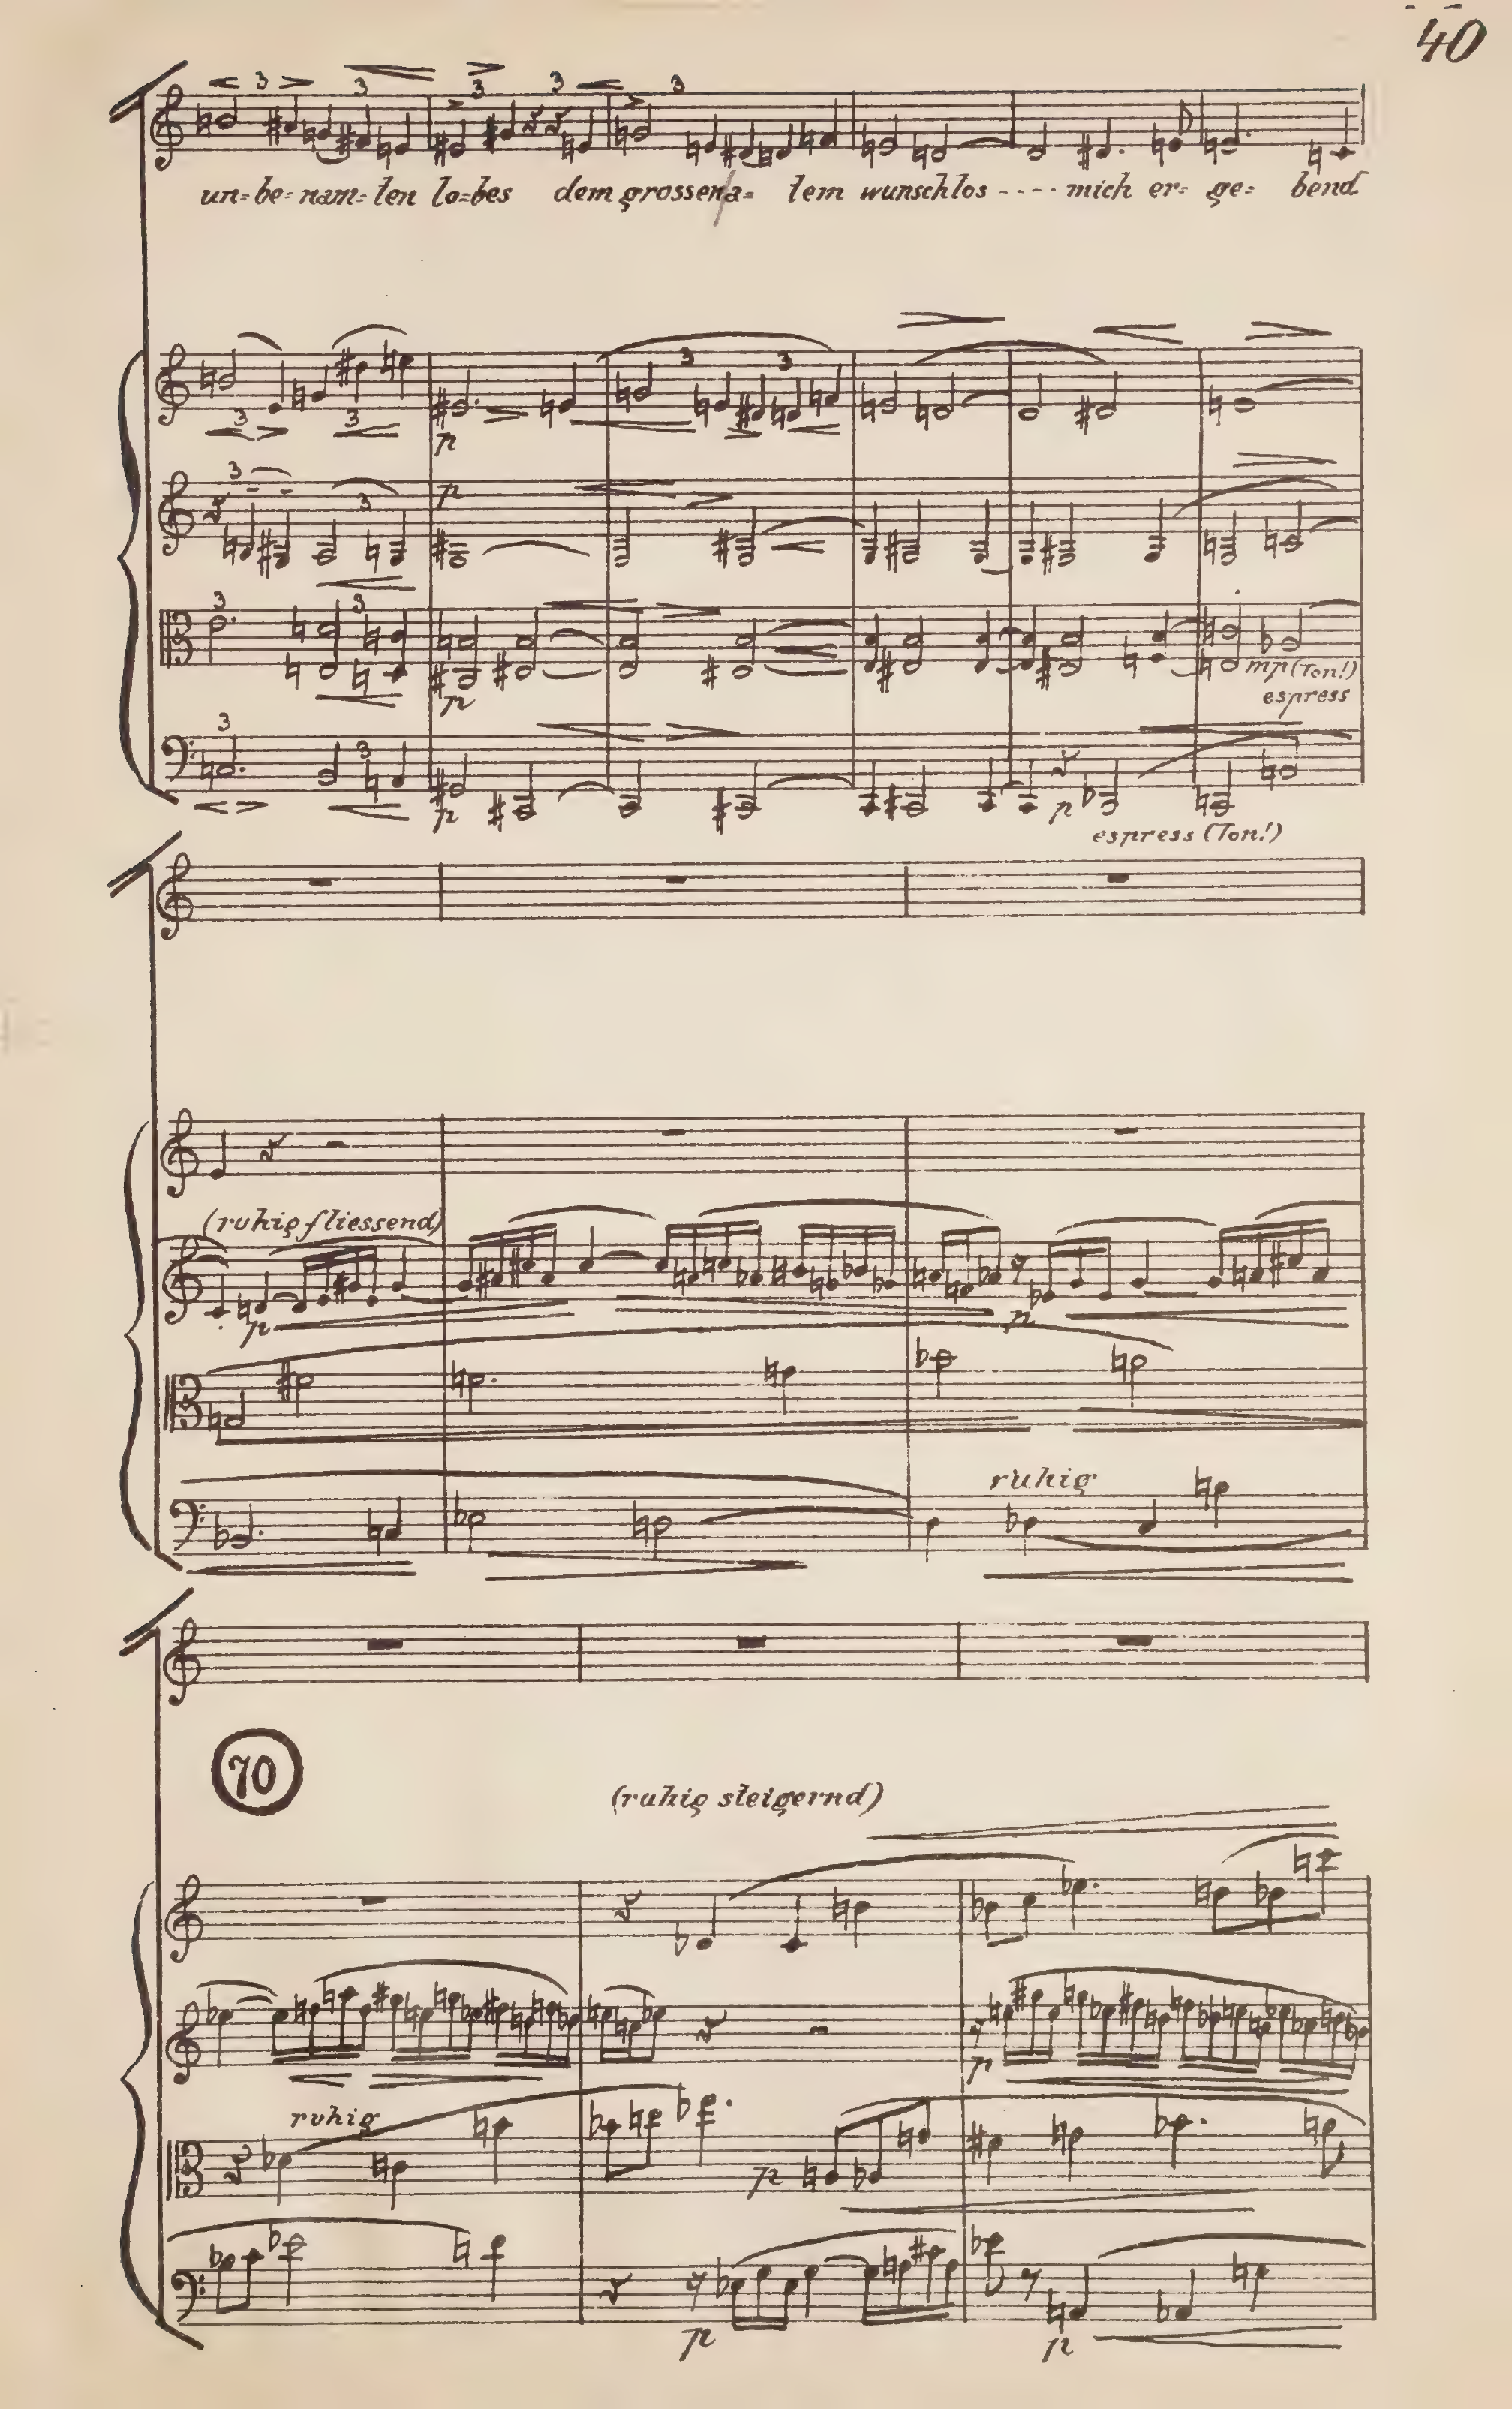 40
3 3 3 3 3
un=be=nam=ten lo=bes dem grossen a= tem wunschlos ---- mich er= ge= bend
3 3
3 3
p
3 3
p
3 3
p
mp (Ton!)
espress
3 3
p p
espress (Ton!)
(ruhig fliessend)
p p
ruhig
70
(ruhig steigernd)
p
ruhig
p
p p